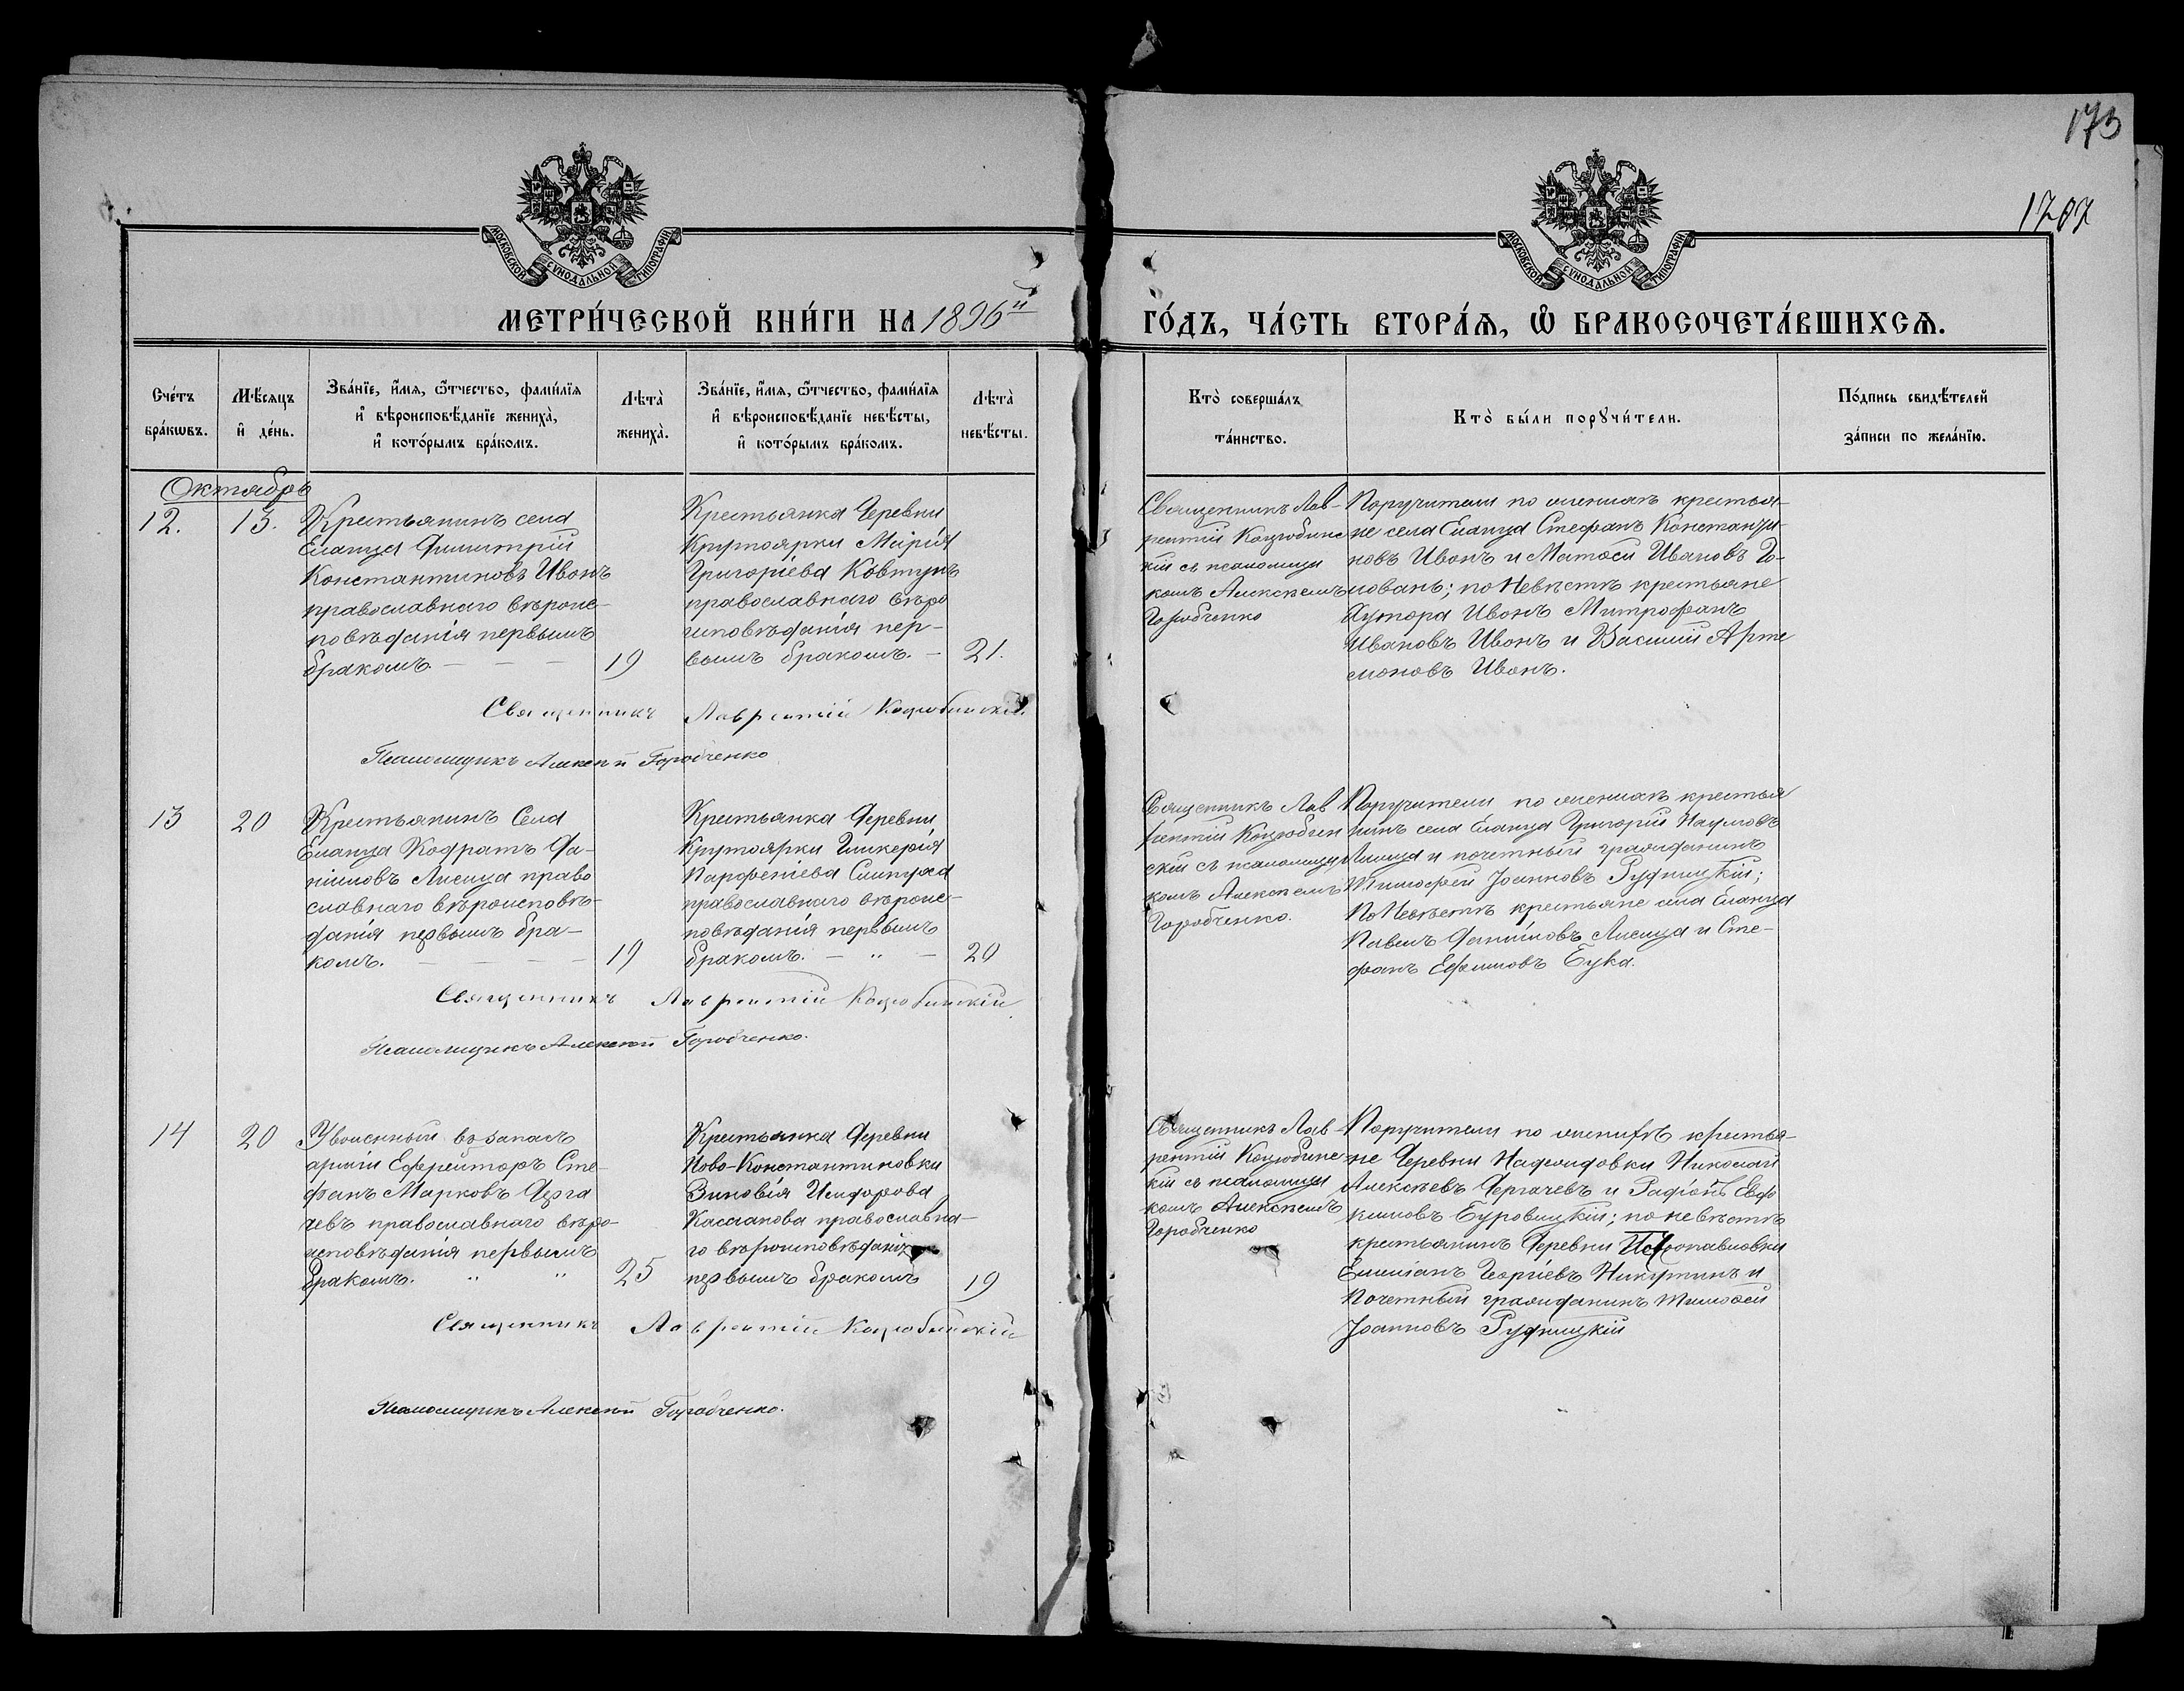 173
1707
МОСКОВСКОЙ СѴНОДАЛЬНОЙ ТИПОГРАФІИ
МОСКОВСКОЙ СѴНОДАЛЬНОЙ ТИПОГРАФІИ
МЕТРИ́ЧЕСКОЙ КНИ́ГИ НА 1896й
ГО́ДЪ, ЧА́СТЬ ВТОРА́Ѧ, Ѡ҆ БРАКОСОЧЕТА́ВШИХСѦ.
Сче́тъ
бра́кѡвъ.
Мѣ́сяцъ
и҆ де́нь.
Зва́нїе, и҆́мѧ, ѻ҆́тчество, фами́лїѧ
и҆ вѣроисповѣ́данїе жениха̀,
и҆ кото́рымъ бра́комъ.
Лѣта̀
жениха̀.
Зва́нїе, и҆́мѧ, ѻ҆́тчество, фами́лїѧ
и҆ вѣроисповѣ́данїе невѣ́сты,
и҆ кото́рымъ бра́комъ.
Лѣта̀
невѣ́сты.
Кто̀ соверша́лъ
та́инство.
Кто̀ бы́ли порꙋчи́тели.
По́дпись свидѣ́телей
за́писи по жела́нїю.
Октябрь
12.
13.
Крестьянинъ села
Еланца Димитрій
Константиновъ Ивонъ
православнаго вѣроис-
повѣданія первымъ
бракомъ. — — —
19
Крестьянка Деревни
Крутоярки Марія
Григоріева Ковтунъ
православнаго вѣро
исповѣданія пер-
вымъ бракомъ. —
21.
Священникъ Лав-
рентій Коцюбинс
кій съ псаломщи
комъ Алексѣемъ
Горобченко
Поручители по женихѣ крестья-
не села Еланца Стефанъ Константи-
новъ Ивонъ и Матѳей Ивановъ Го-
лованъ; по Невѣстѣ крестьяне
Хутора Ивонъ Митрофанъ
Ивановъ Ивонъ и Василій Арте
моновъ Ивонъ.
Священникъ Лаврентій Коцюбинскій.
Псаломщикъ Алексѣй Горобченко
13
20
Крестьянинъ Села
Еланца Кодратъ Да-
ніиловъ Лисица право
славнаго вѣроисповѣ-
данія первымъ бра-
комъ. — — —
19
Крестьянка Деревни
Крутоярки Гликерія
Парфеніева
православнаго вѣроис-
повѣданія первымъ
бракомъ. — „ —
20
Священникъ Лав
рентій Коцюбин
скій съ псаломщи
комъ Алексѣемъ
Горобченко.
Поручители по женихѣ крестья
нинъ села Еланца Григорій Наумовъ
Лисица и почетный гражданинъ
Тимоѳей Іоанновъ Рудницкій;
По Невѣстѣ крестьяне села Еланца
Павелъ Даніиловъ Лисица и Сте-
фанъ Ефимовъ Бука.
Священникъ Лаврентій Коцюбинскій.
Псаломщикъ Алексѣй Горобченко.
14
20
Уволенный въ запасъ
арміи Ефрейторъ Сте-
фанъ Марковъ Дерга
чевъ православнаго вѣро-
исповѣданія первымъ
бракомъ. „ „
25
Крестьянка Деревни
Ново-Константиновки
Зиновія Исидорова
Касланова православна-
го вѣроисповѣданія
первымъ бракомъ
19
Священникъ Лав-
рентій Коцюбинс-
кій съ псаломщи
комъ Алексѣемъ
Горобченко
Поручители по женихѣ крестья-
не Деревни Надеждовки Николай
Алексѣевъ Дергачевъ и Радіонъ Евдо
кимовъ Буровицкій; по невѣстѣ
крестьянинъ Деревни Петропавловки
Емиліанъ Георгіевъ Никитинъ и
Почетный гражданинъ Тимоѳей
Іоанновъ Рудницкій
Священникъ Лаврентій Коцюбинскій
Псаломщикъ Алексѣй Горобченко.